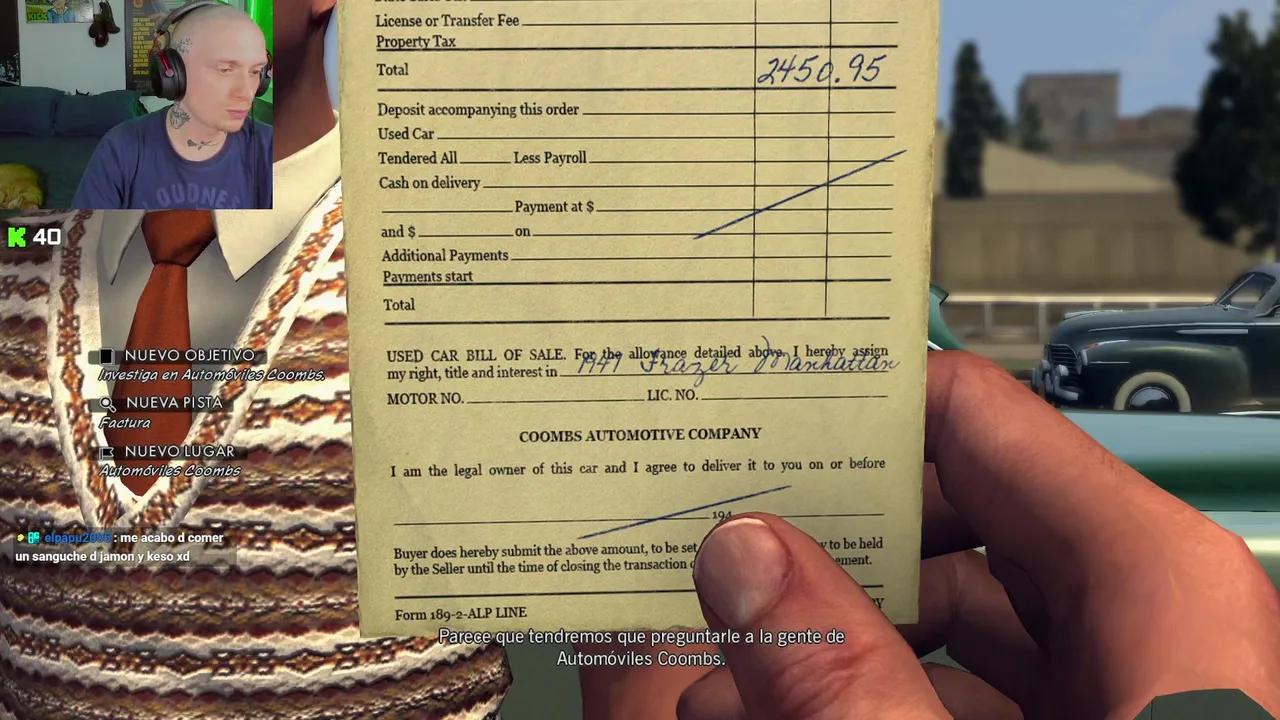 License or Transfer Fee
Property Tax
Total 2450.95
Deposit accompanying this order
Used Car
Tendered All Less Payroll
Cash on delivery
Payment at $
and $ on
Additional Payments
Payments start
Total
USED CAR BILL OF SALE. For the allowance detailed above, I hereby assign
my right, title and interest in 1947 Frazer Manhattan
MOTOR NO. LIC. NO.
COOMBS AUTOMOTIVE COMPANY
I am the legal owner of this car and I agree to deliver it to you on or before
194
Buyer does hereby submit the above amount, to be set to be held
by the Seller until the time of closing the transaction
Form 189-2-ALP LINE
K 40
NUEVO OBJETIVO
Investiga en Automóviles Coombs.
NUEVA PISTA
Factura
NUEVO LUGAR
Automóviles Coombs
: me acabo d comer
un sanguche d jamon y keso xd
Parece que tendremos que preguntarle a la gente de
Automóviles Coombs.